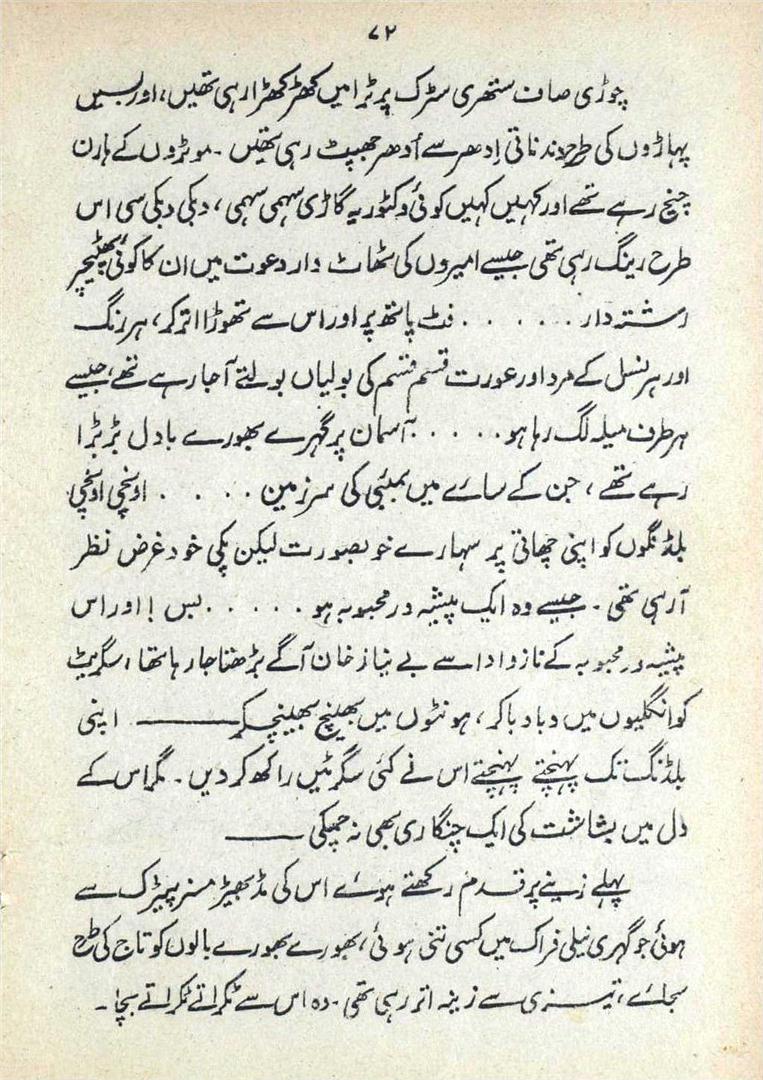 ۷۲
چوڑی صاف ستھری سڑک پر ٹرا میں کھڑ کھڑا رہی تھیں، اور بسیں
پہاڑوں کی طرح دندناتی اِدھر سے اُدھر جھپٹ رہی تھیں ۔ موٹروں کے ہارن
چنچ رہے تھے اور کہیں کہیں کوئی وکٹوریہ گاڑی سہمی سہمی ، دبکی دبکی سی اس
طرح رینگ رہی تھی جیسے امیروں کی ٹھاٹ دار دعوت میں ان کا کوئی پھٹیچر
رشتہ دار . . . . . . فٹ پاتھ پر اور اس سے تھوڑا اتر کر، ہر رنگ
اور ہر نسل کے مرد اور عورت قسم قسم کی بولیاں بولتے آ جا رہے تھے، جیسے
ہر طرف میلہ لگ رہا ہو . . . . . آسمان پر گہرے بھورے بادل بڑبڑا
رہے تھے ، جن کے سائے میں بمبئی کی سرزمین . . . . اونچی اونچی
بلڈنگوں کو اپنی چھاتی پر سہارے خوبصورت لیکن پکی خود غرض نظر
آ رہی تھی ۔ جیسے وہ ایک پیشہ ور محبوبہ ہو . . . . . بس ! اور اس
پیشہ ور محبوبہ کے ناز و ادا سے بے نیاز خان آگے بڑھتا جا رہا تھا ، سگریٹ
کو انگلیوں میں دبا دبا کر ، ہونٹوں میں بھینچ بھینچ کر ——— اپنی
بلڈنگ تک پہنچتے پہنچتے اس نے کئی سگرٹیں راکھ کر دیں ۔ مگر اس کے
دل میں بشاشت کی ایک چنگاری بھی نہ چمکی ———
پہلے زینے پر قدم رکھتے ہوئے اس کی مڈبھیڑ مسز پیٹرک سے
ہوئی جو گہری نیلی فراک میں کسی تنی ہوئی ، بھورے بھورے بالوں کو تاج کی طرح
سجائے ، تیزی سے زینہ اتر رہی تھی ۔ وہ اس سے ٹکراتے ٹکراتے بچا ۔